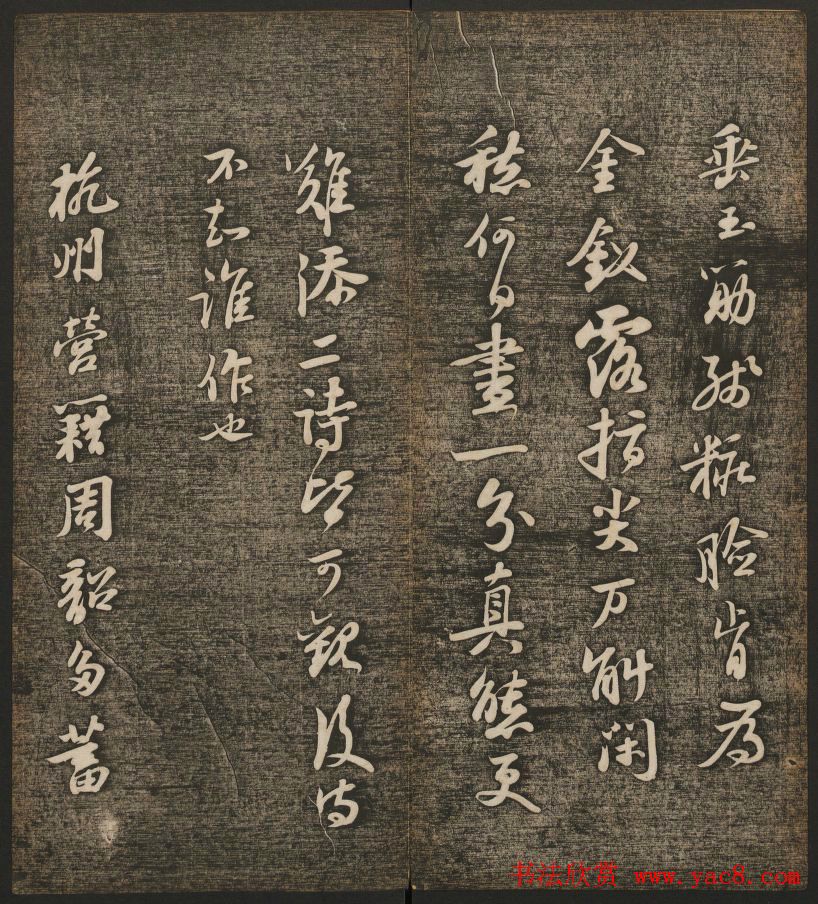 垂玉筯残粧脸肯为
金钗露指尖万斛闲
愁何日尽一分真态更
难添二诗皆可观后诗
不知谁作也
杭州营籍周韶多蓄
书法欣赏 www.yac8.com